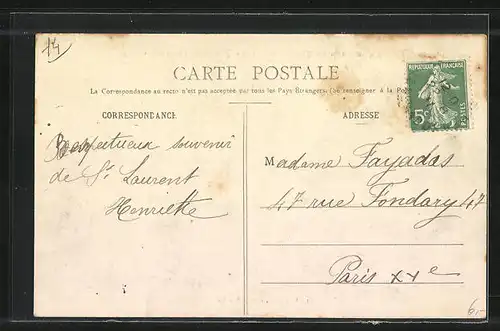 14
CARTE POSTALE
La Correspondance au recto n'est pas acceptée par tous les Pays Étrangers (Se renseigner à la Poste
CORRESPONDANCE
ADRESSE
REPUBLIQUE FRANÇAISE
5c
POSTES
Respectueux souvenir
de St Laurent
Henriette
Madame Fayadas
47 rue Fondary 47
Paris XVe
6,-